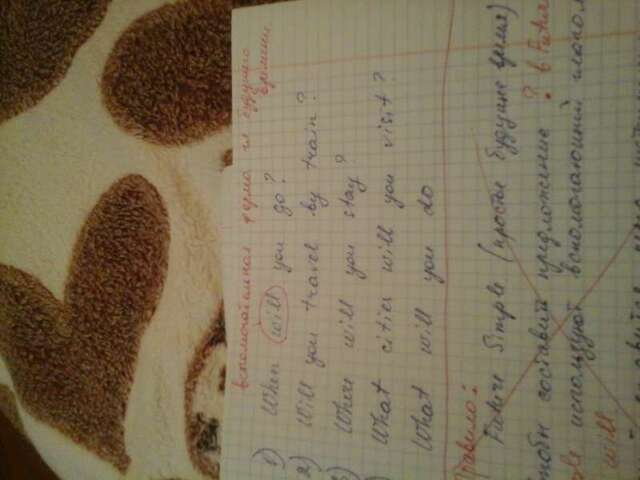 вспомогательная форма гл будущего
времени
1) When will you go?
2) Will you travel by train?
3) Where will you stay?
) What cities will you visit?
What will you do
Правило:
Future Simple (простое будущее время)
чтобы составить предложение ? в Future
ple используют вспомогающий глагол
will